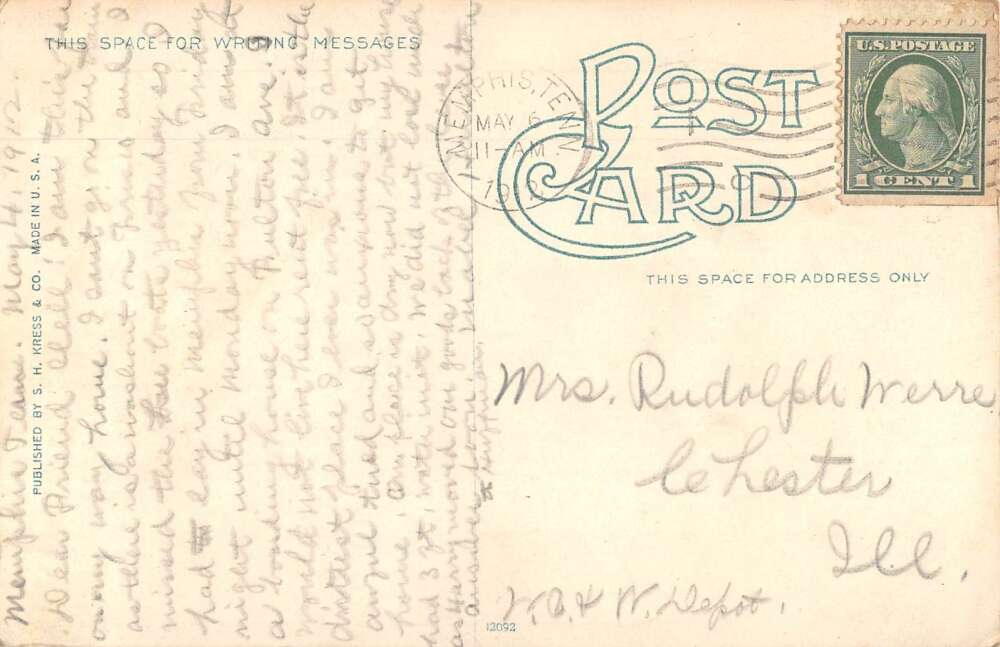 THIS SPACE FOR WRITING MESSAGES
PUBLISHED BY S. H. KRESS & CO. MADE IN U. S. A.
Memphis Tenn. May 4, 1912
Dear Friend I am this far
on my way home. I cant go on the train
as there is a washout on and I
missed the boat yesterday so I
had lay in Memphis from friday
night until Monday noon. I am at
a boarding house on Fulton ave. I
would not live here rent free. It is the
dirtiest place I ever saw. I am
awful tired and so anxious to get
home.
had 3 ft, water in it, we did not loose much
as Harry moved our goods
MEMPHIS, TENN
MAY 6
11-AM
1912
POST
CARD
U.S. POSTAGE
1 CENT 1
THIS SPACE FOR ADDRESS ONLY
Mrs. Rudolph Werre
Chester
Ill.
Depot.
12092